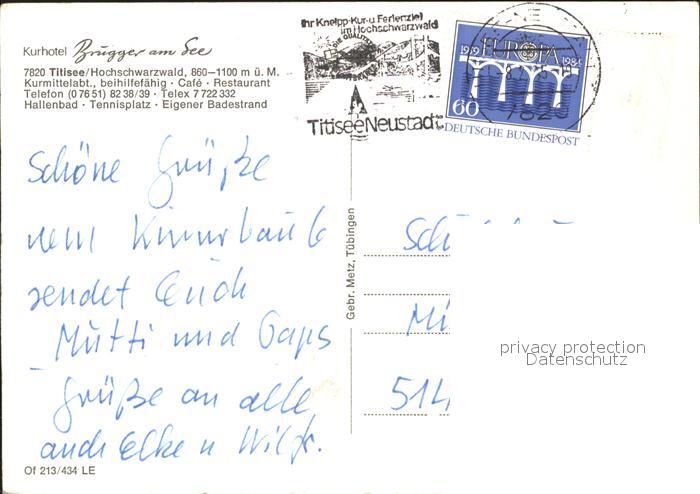 Kurhotel Brugger am See
7820 Titisee/Hochschwarzwald, 860–1100 m ü. M.
Kurmittelabt., beihilfefähig · Café · Restaurant
Telefon (0 76 51) 82 38/39 · Telex 7 722 332
Hallenbad · Tennisplatz · Eigener Badestrand
Ihr Kneipp-Kur-u Ferienziel
im Hochschwarzwald
Titisee Neustadt
1959 EUROPA 1984
60
DEUTSCHE BUNDESPOST
7820
Schöne Grüße
sendet Euch
Mutti und
Grüße an alle
auch Elke u
Gebr. Metz, Tübingen
514
privacy protection
Datenschutz
Of 213/434 LE